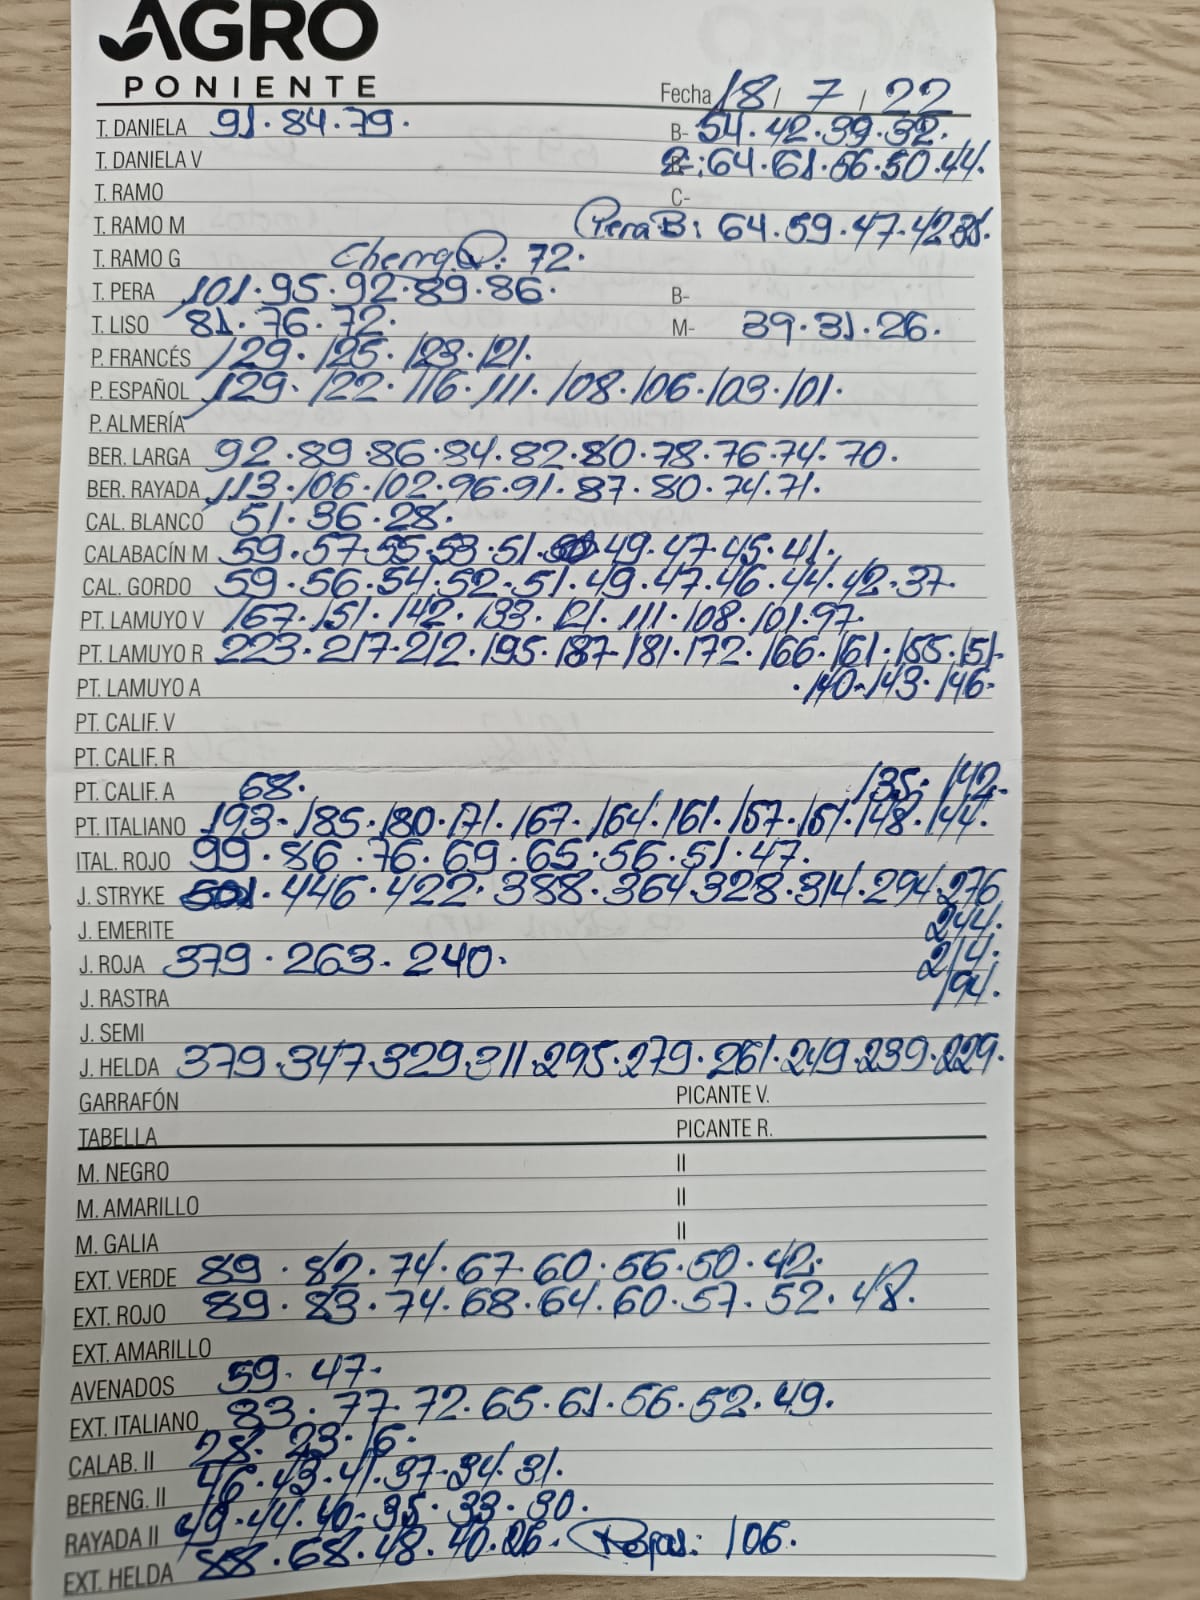 AGRO
PONIENTE
Fecha 18 / 7 / 22
T. DANIELA 91. 84. 79. B- 54. 42. 39. 32.
T. DANIELA V 2: 64. 61. 56. 50. 44.
T. RAMO C-
T. RAMO M Pera B: 64. 59. 47. 42 38.
T. RAMO G Cherry : 72.
T. PERA 101. 95. 92. 89. 86. B-
T. LISO 81. 76. 72. M- 39. 31. 26.
P. FRANCÉS 129. 125. 123. 121.
P. ESPAÑOL 129. 122. 116. 111. 108. 106. 103. 101.
P. ALMERÍA
BER. LARGA 92. 89. 86. 84. 82. 80. 78. 76. 74. 70.
BER. RAYADA 113. 106. 102. 96. 91. 87. 80. 74. 71.
CAL. BLANCO 51. 36. 28.
CALABACÍN M 59. 57. 55. 53. 51. 49. 47. 45. 41.
CAL. GORDO 59. 56. 54. 52. 51. 49. 47. 46. 44. 42. 37.
PT. LAMUYO V 167. 151. 142. 133. 121. 111. 108. 101. 97.
PT. LAMUYO R 223. 217. 212. 195. 187. 181. 172. 166. 161. 155. 151.
PT. LAMUYO A . 140. 143. 146.
PT. CALIF. V
PT. CALIF. R
PT. CALIF. A 68. 135. 142.
PT. ITALIANO 193. 185. 180. 171. 167. 164. 161. 157. 151. 148. 144.
ITAL. ROJO 99. 86. 76. 69. 65. 56. 51. 47.
J. STRYKE 501. 446. 422. 388. 364. 328. 314. 294. 276
J. EMERITE 244.
J. ROJA 379. 263. 240. 214.
J. RASTRA 194.
J. SEMI
J. HELDA 379. 347. 329. 311. 295. 279. 261. 249. 239. 229.
GARRAFÓN PICANTE V.
TABELLA PICANTE R.
M. NEGRO II
M. AMARILLO II
M. GALIA II
EXT. VERDE 89. 82. 74. 67. 60. 56. 50. 42.
EXT. ROJO 89. 83. 74. 68. 64. 60. 57. 52. 48.
EXT. AMARILLO
AVENADOS 59. 47.
EXT. ITALIANO 83. 77. 72. 65. 61. 56. 52. 49.
CALAB. II 28. 23. 16.
BERENG. II 46. 43. 41. 37. 34. 31.
RAYADA II 49. 44. 40. 35. 33. 30.
EXT. HELDA 88. 68. 48. 40. 26. : 106.